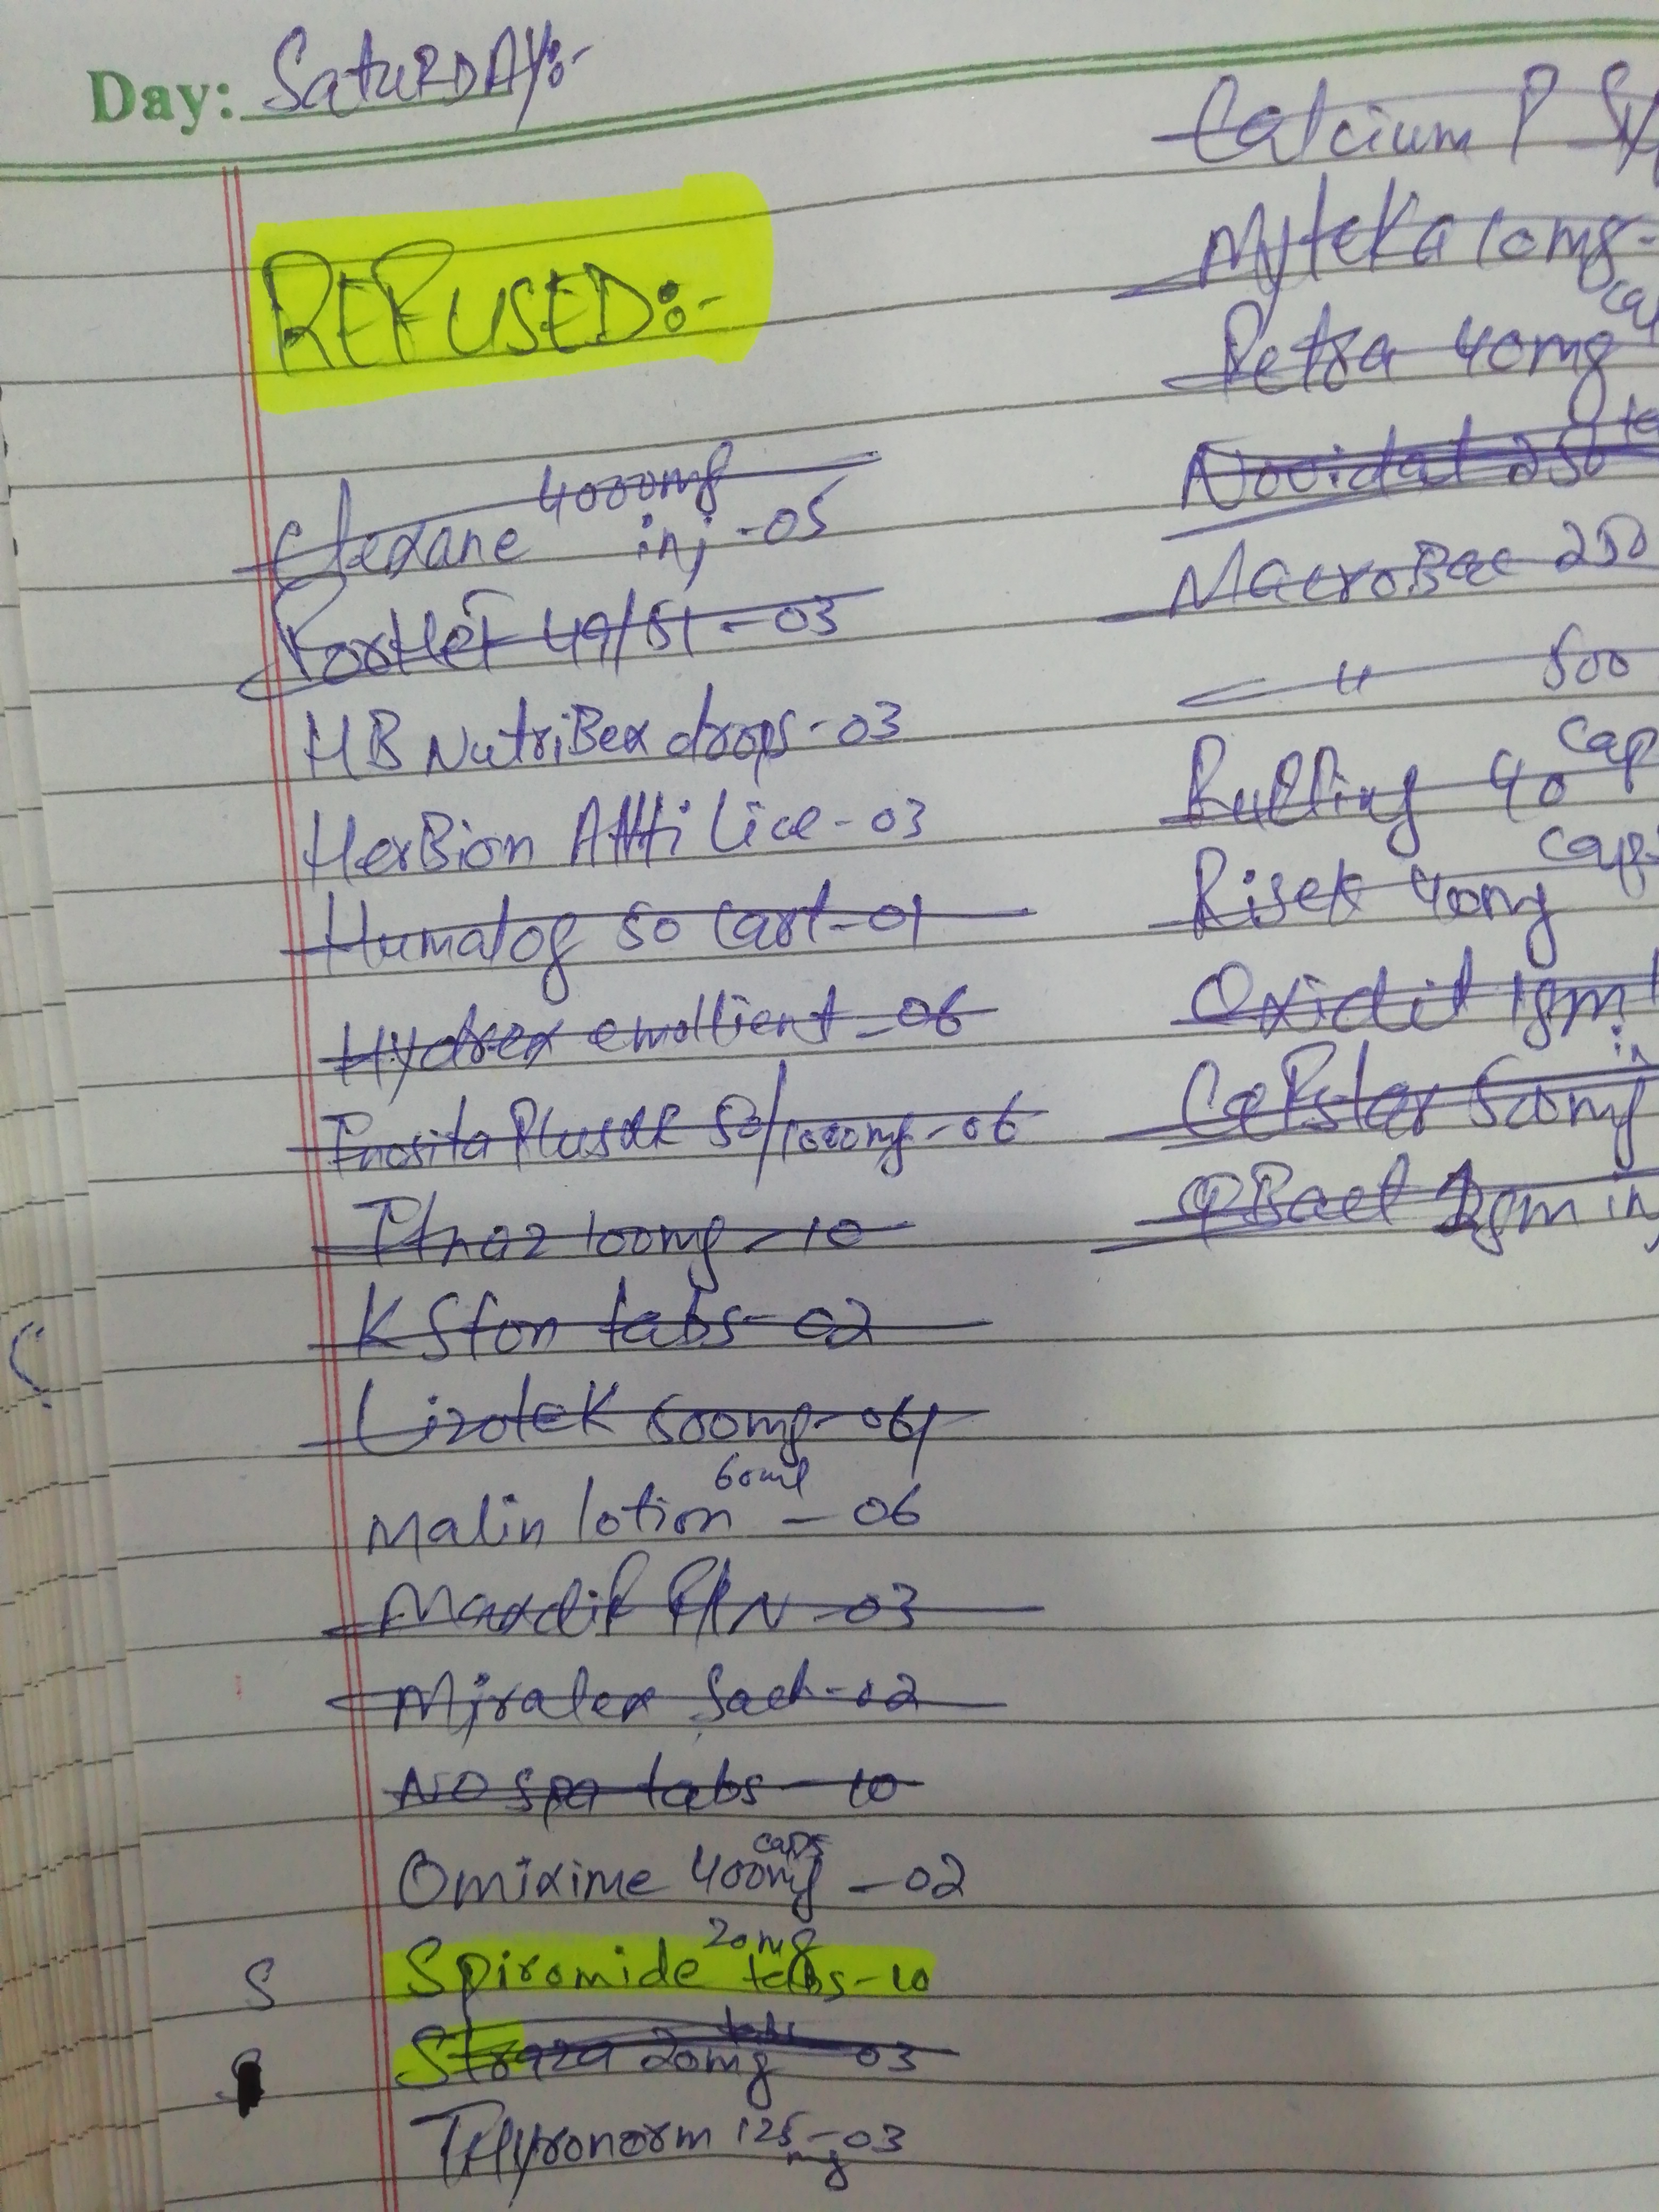 Day: SaturDAY:-
REFUSED:-
Clexane 4000mg inj -05
49/51 - 03
HB NutriBex drops - 03
HerBion Anti Lice - 03
Humalog 50 Cart - 01
Hydrex emollient - 06
Inosita Plus XR 50/1000mg - 06
100mg - 10
K Ston tabs - 02
Lizotek 600mg - 06
Malin lotion 60ml - 06
Maxdif - 03
Miralex Sach - 02
NO Spa tabs - 10
Omixime 400mg caps - 02
S Spiromide 20mg tabs - 10
Straza 20mg tabs 03
THyronorm 125mg - 03
Calcium P
Myteka 10mg -
40mg
Novidat 250
MacroBac 250
" 500
Rulling 40 cap
Risek 40mg cap
Oxidil 1gm
Cefstar 500mg in
QBact 2gm in